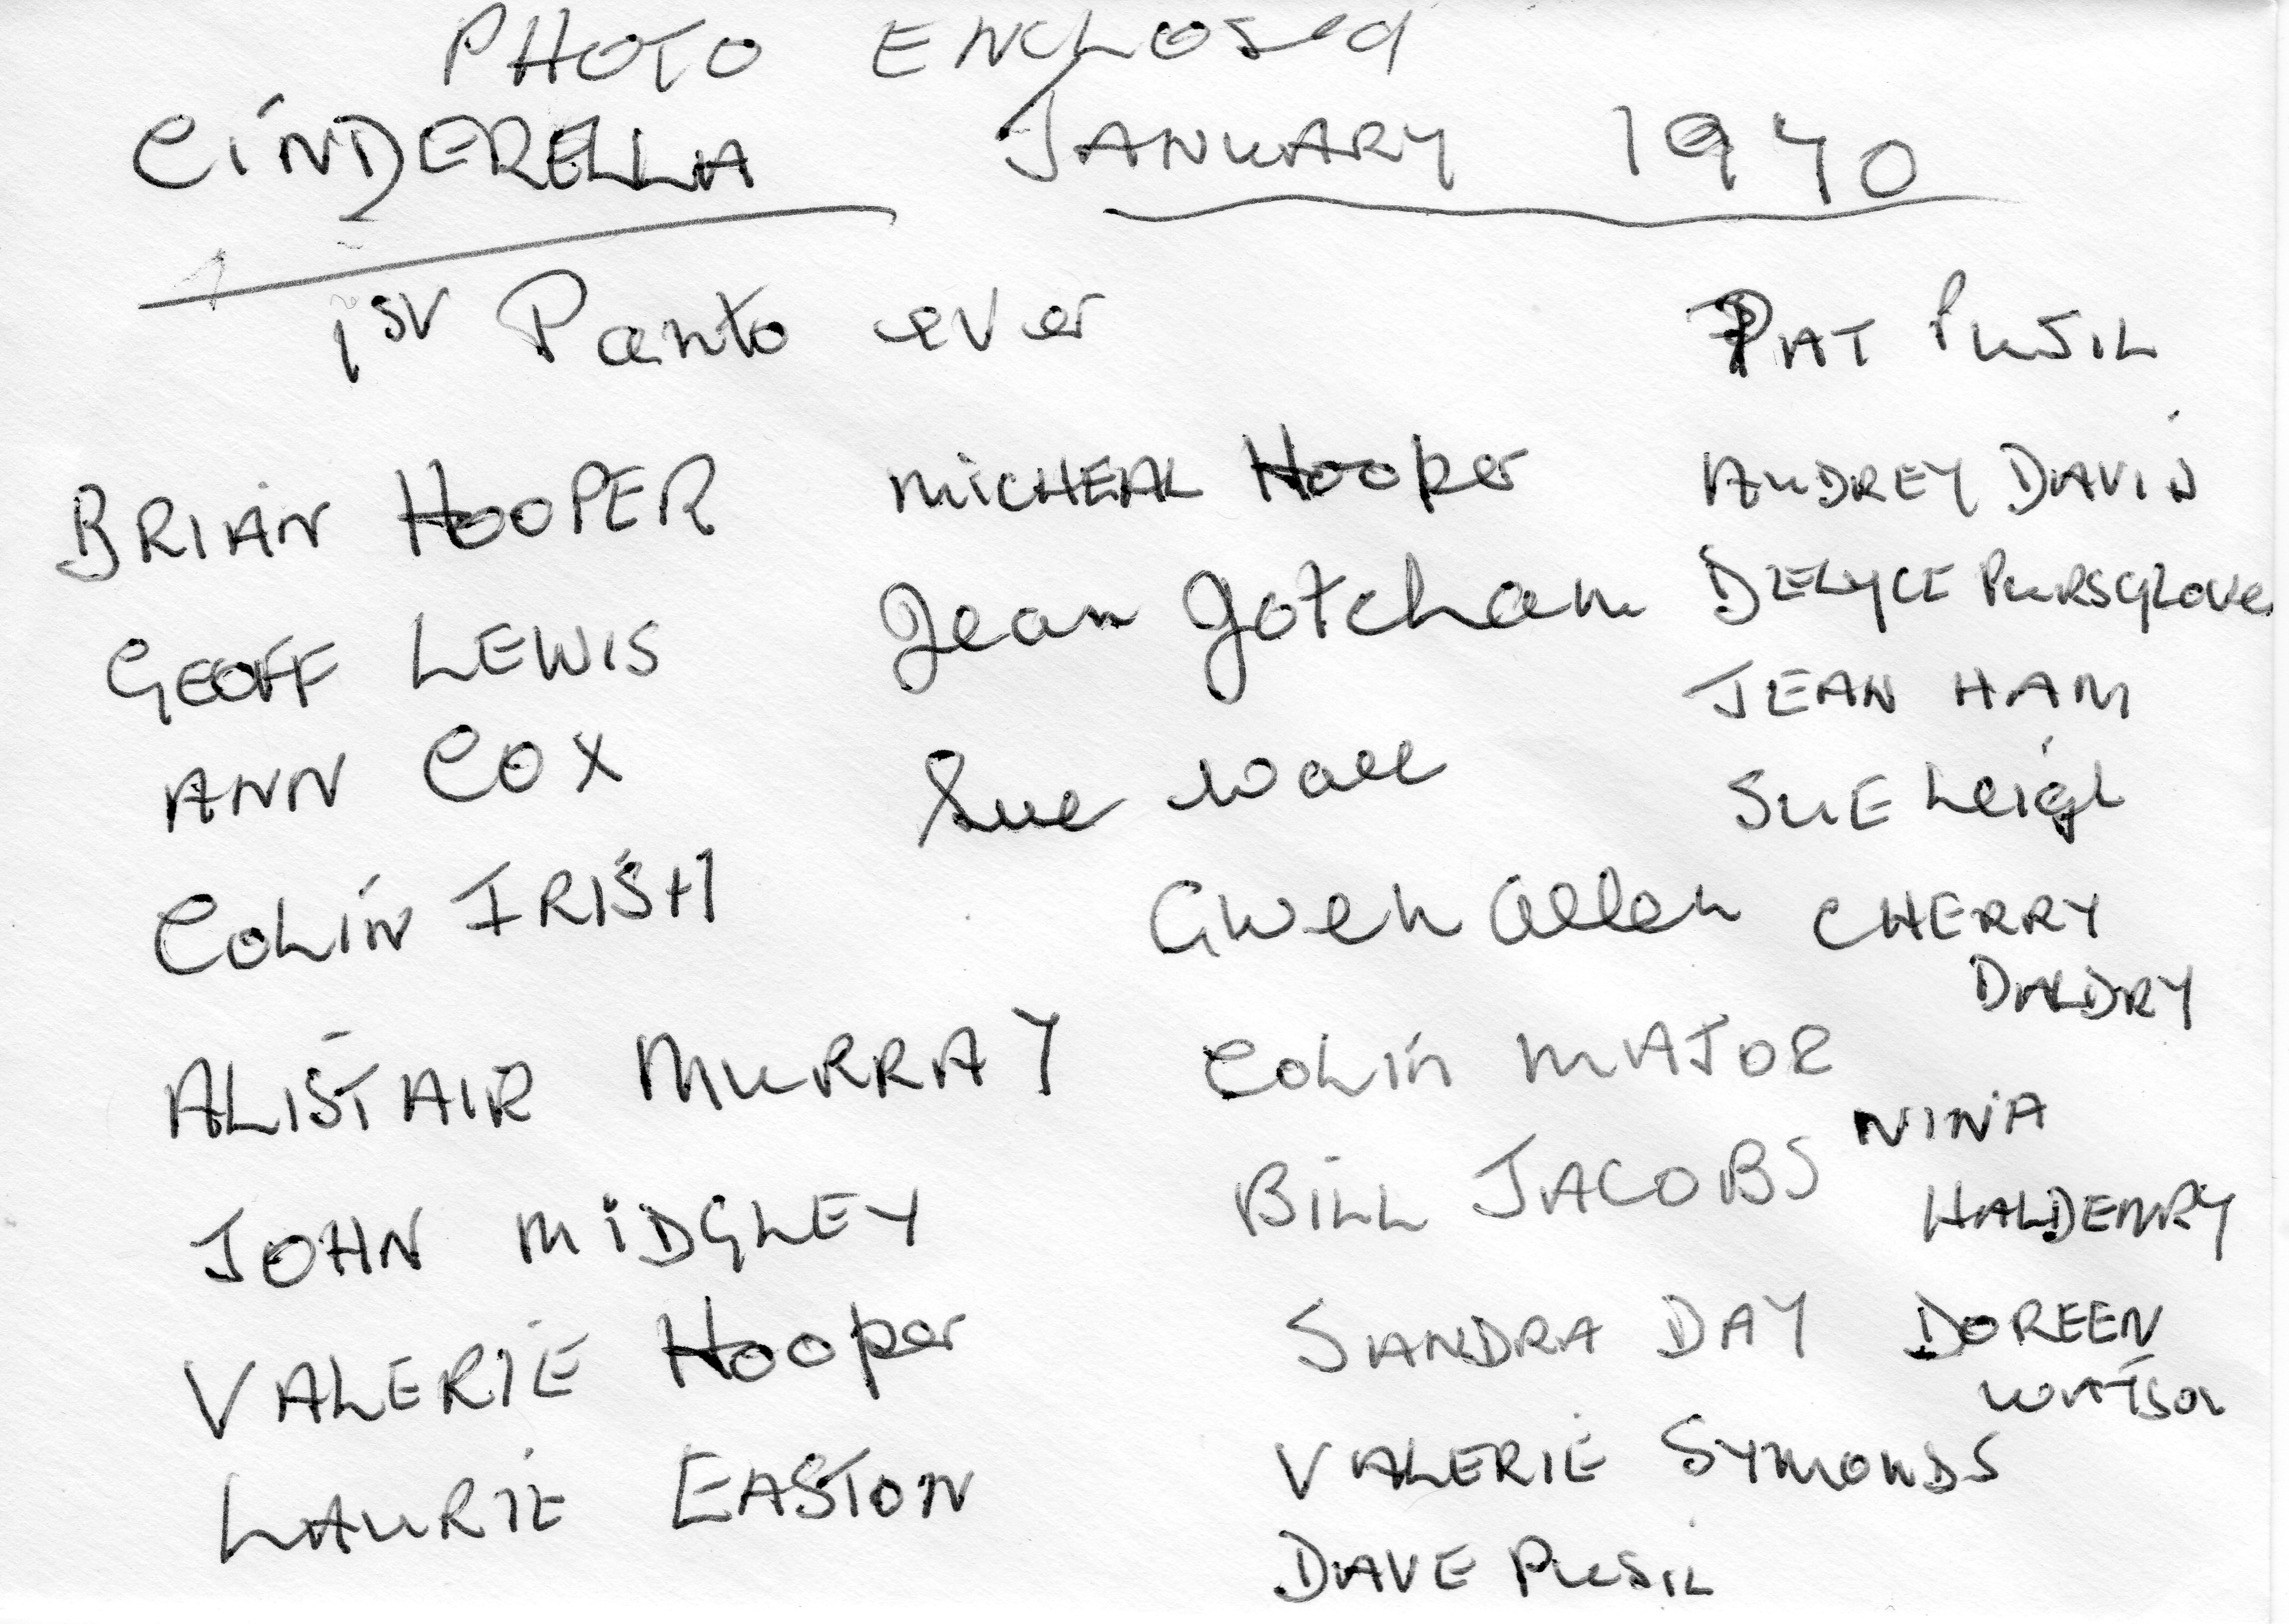 PHOTO ENCLOSED
CINDERELLA JANUARY 1940
1ST Panto ever
BRIAN HOOPER
GEOFF LEWIS
ANN COX
COLIN IRISH
ALISTAIR MURRAY
JOHN MIDGLEY
VALERIE Hooper
LAURIE EASTON
MICHEAL Hooper
Jean Gotcham
Sue Wall
Gwen Allen
COLIN MAJOR
BILL JACOBS
SANDRA DAY
VALERIE SYMONDS
DAVE PUSIL
PAT PUSIL
AUDREY DAVIN
DELYCE PURSGLOVE
JEAN HAM
SUE Leigh
CHERRY
DALDRY
NINA
HALDENRY
DOREEN
WATSON